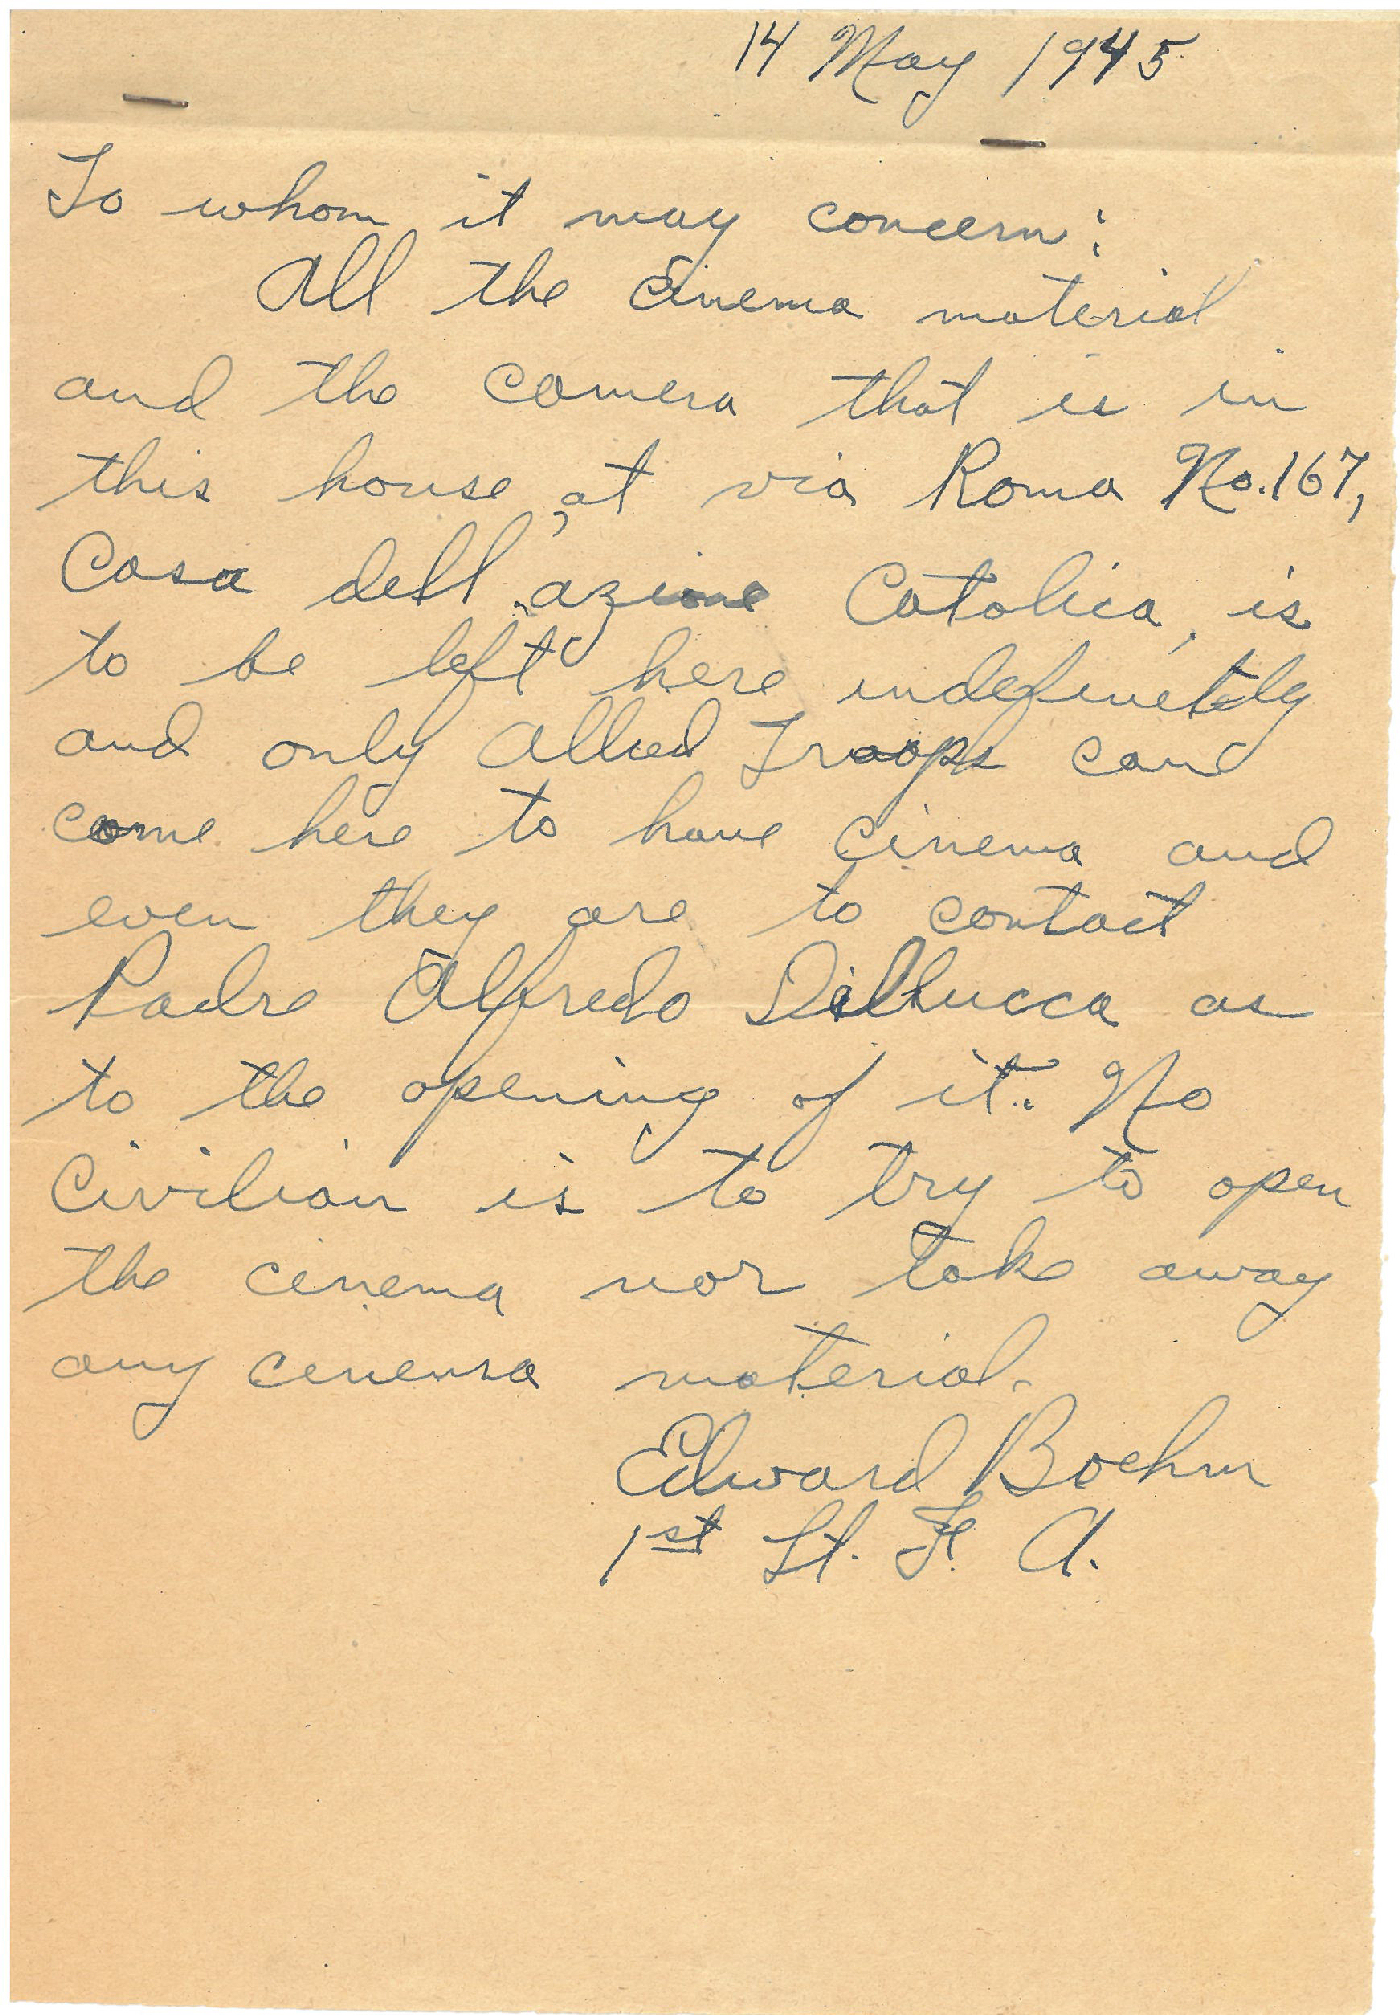 14 May 1945
To whom it may concern:
All the Cinema material
and the camera that is in
this house, at via Roma No. 167,
Casa dell azione Catolica, is
to be left here indefinetely
and only Allied Troops can
come here to have cinema and
even they are to contact
Padre Alfredo Dellucca as
to the opening of it. No
civilian is to try to open
the cinema nor take away
any cenema material.
Edward Boehm
1st Lt. F. A.